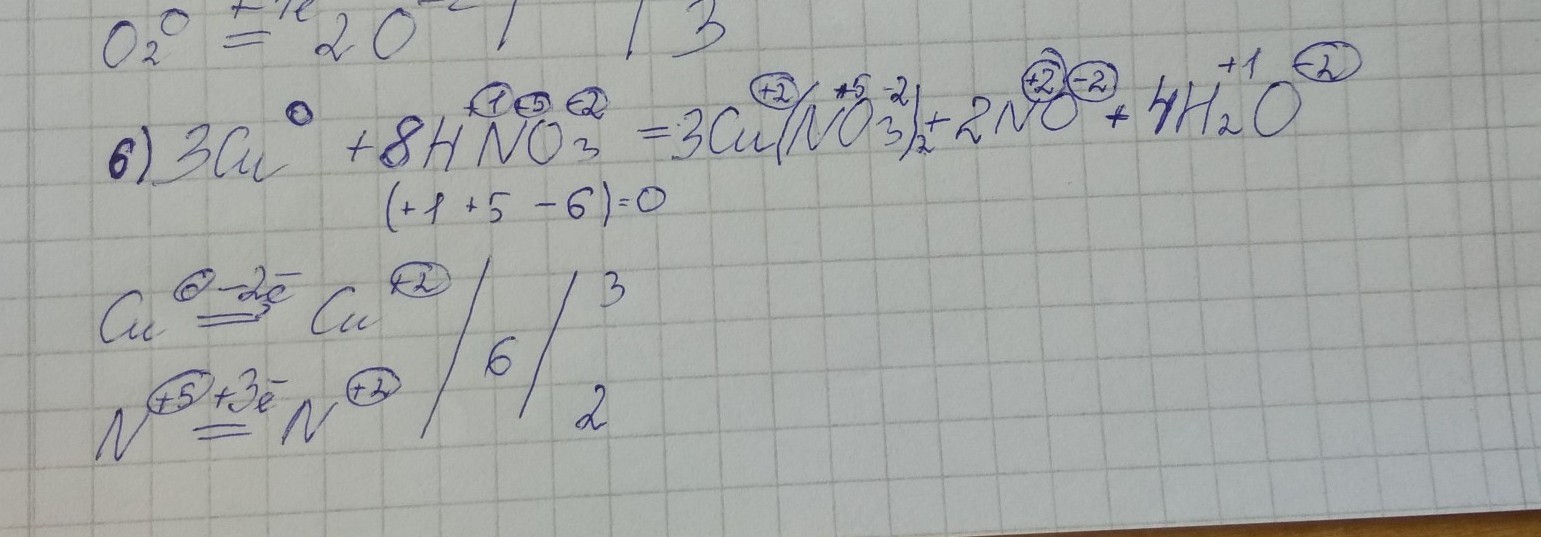 O₂⁰ +4e = 2O⁻² / / 3
6) 3Cu⁰ + 8H⁺¹N⁺⁵O₃⁻² = 3Cu⁺²(N⁺⁵O₃⁻²)₂ + 2N⁺²O⁻² + 4H₂⁺¹O⁻²
(+1 +5 -6) = 0
Cu⁰ -2e̅ = Cu⁺² / 6 / 3
N⁺⁵ +3e̅ = N⁺² / / 2